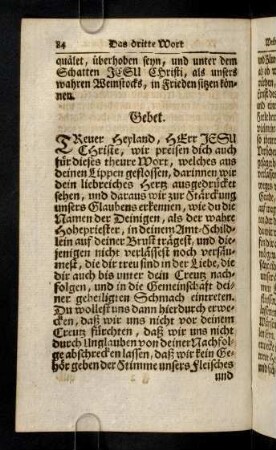 84 Das dritte Wort
quälet, überhoben seyn, und unter dem
Schatten JESU CHristi, als unsers
wahren Weinstocks, in Frieden sitzen kön-
nen.
Gebet.
TReuer Heyland, HErr JESU
CHriste, wir preisen dich auch
für dieses theure Wort, welches aus
deinen Lippen geflossen, darinnen wir
dein liebreiches Hertz ausgedrücket
sehen, und daraus wir zur Stärckung
unsers Glaubens erkennen, wie du die
Namen der Deinigen, als der wahre
Hohepriester, in deinem Amt-Schild-
lein auf deiner Brust trägest, und die-
jenigen nicht verlässest noch versäu-
mest, die dir treu sind in der Liebe, die
dir auch bis unter dein Creutz nach-
folgen, und in die Gemeinschaft dei-
ner geheiligten Schmach eintreten.
Du wollest uns dann hierdurch erwe-
cken, daß wir uns nicht vor deinem
Creutz fürchten, daß wir uns nicht
durch Unglauben von deiner Nachfol-
ge abschrecken lassen, daß wir kein Ge-
hör geben der Stimme unsers Fleisches
und